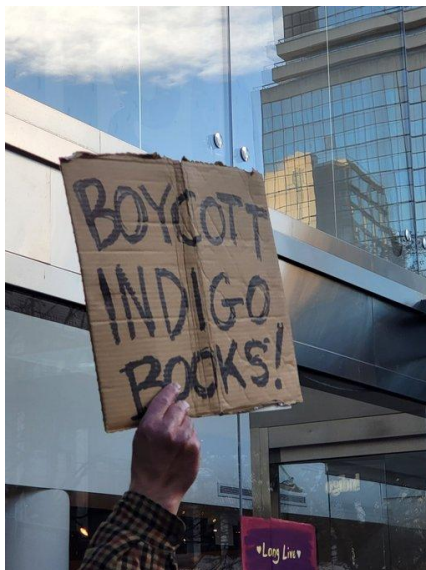 BOYCOTT
INDIGO
BOOKS!
♥Long Live♥